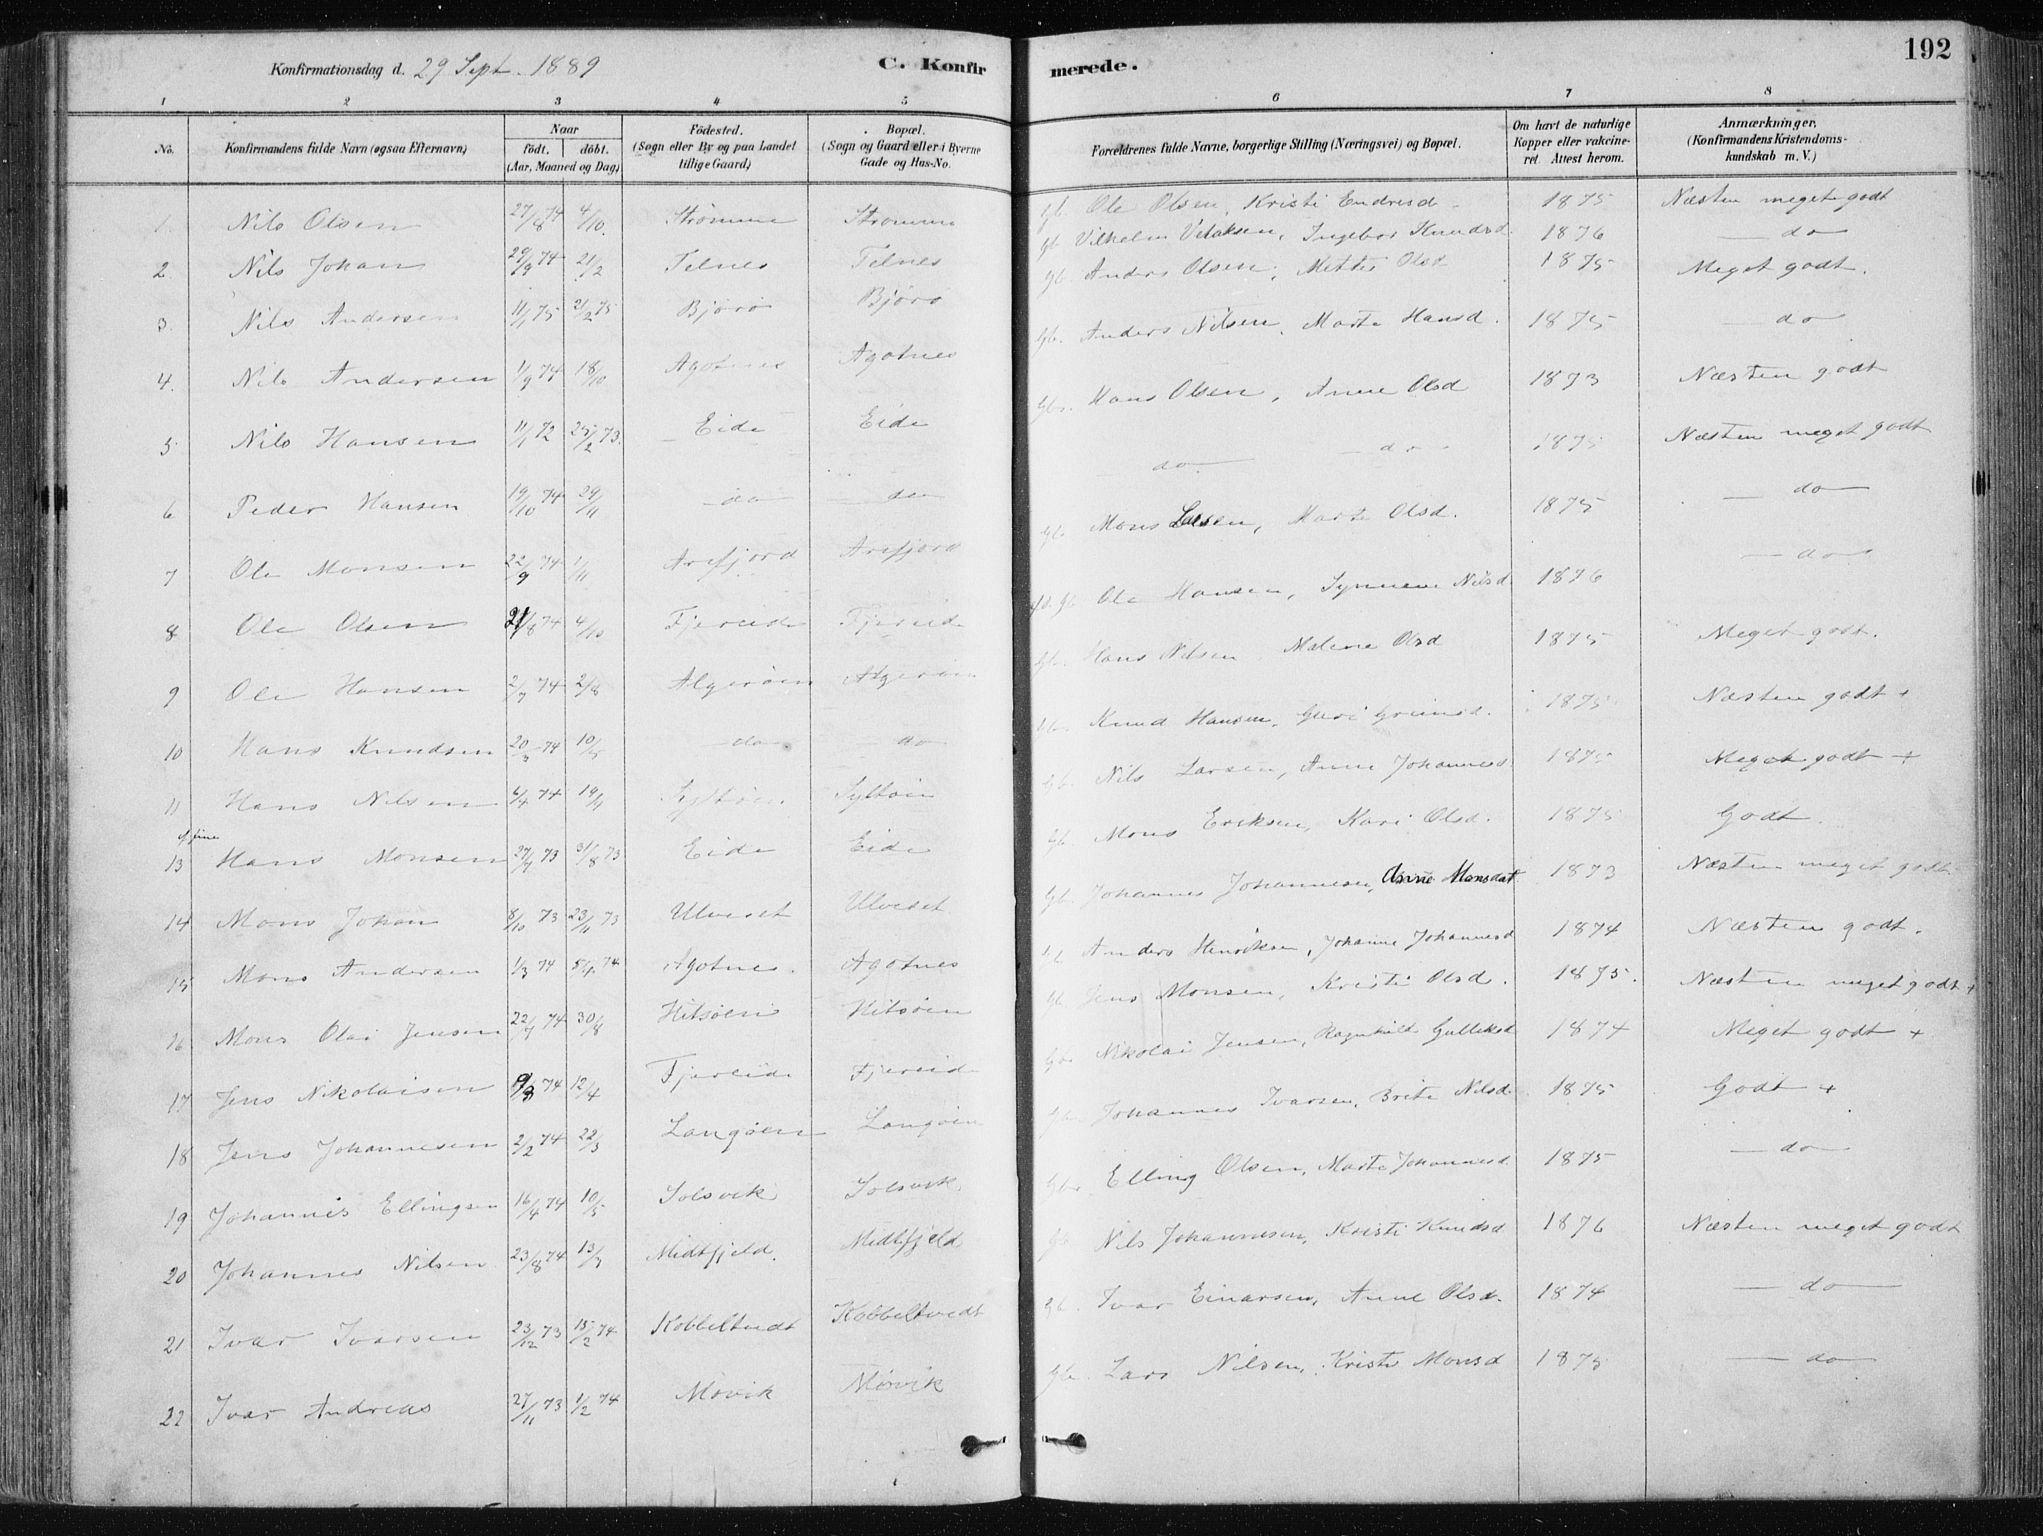 192
Konfirmationsdag d. 29 Sept. 1889 C. Konfir merede.
1 2 3 4 5 6 7 8
No. Konfirmandens fulde Navn (ogsaa Efternavn) Naar födt. döbt. (Aar, Maaned og Dag) Födested. (Sogn eller By og paa Landet tillige Gaard) Bopæl. (Sogn og Gaard eller i Byerne Gade og Hus-No. Forældrenes fulde Navne, borgerlige Stilling (Næringsvei) og Bopæl. Om havt de naturlige Kopper eller vakcineret. Attest herom. Anmærkninger. (Konfirmandens Kristendomskundskab m. V.)
1. Nils Olsen 27/8 74 4/10. Strømme Strømme Gb. Ole Olsen, Kristi Endresd. 1875 Næsten meget godt
2. Nils Johan 29/9 74 21/2 Telnes Telnes Gb. Vilhelm Ingebor Knudsd. 1876 do
3. Nils Andersen 11/1 75 21/2 75 Bjørø Bjørø Gb. Anders Olsen, Mette Olsd 1875 Meget godt.
4. Nils Andersen 1/9 74 18/10 Agotnes Agotnes Gb. Anders Nilsen, Marte Hansd. 1875 do
5 Nils Hansen 11/1 72 25/2 73. Eide Eide Gbr. Hans Olsen, Anne Olsd 1873 Næsten godt
6 Peder Hansen 19/10 74 29/11 do do do do 1875 Næsten meget godt
7 Ole Monsen 22/9 74 1/11 Arefjord Arefjord Gb. Mons Larsen, Marte Olsd. 1875 do
8 Ole Olsen 21/8 74 4/10 Fjæreide Fjæreide Gb. Ole Hansen, Synneve Nilsd. 1876 do
9 Ole Hansen 2/7 74 2/8 Algerøen Algerøen Gb. Hans Nilsen, Malene Olsd 1875 Meget godt.
10 Hans Knudsen 20/3 74 10/5 do do Gb. Knud Hansen, Guri Grimsd. 1875 Næsten godt +
11 Hans Nilsen 6/4 74 19/4 Syltøen Syltøen Gb. Nils Larsen, Anne Johannesd. 1875 Meget godt +
13 Hans Monsen 27/7 73 31/8 73 Eide Eide Gb. Mons Eriksen, Kari Olsd. 1875 Godt.
14 Mons Johan 8/10 73 23/11 73 Ulveset Ulveset Gb. Johannes Johannesen, Anne Monsdat. 1873 Næsten meget godt
15 Mons Andersen 1/3 74 5/4 74 Agotnes. Agotnes Gb. Anders Henriksen, Johanne Johannesd 1874 Næsten godt.
16 Mons Olai Jensen 22/7 74 30/8 Hitsøen Hitsøen Gb. Jens Monsen, Kristi Olsd. 1875. Næsten meget godt +
17 Jens Nikolaisen 9/3 74 12/4 Fjæreide Fjæreide Gb. Nikolai Jensen, Ragnhild Gulliksd 1874 Meget godt +
18 Jens Johannesen 2/2 74 22/3 Langøen Langøen Gb. Johannes Ivarsen, Brite Nilsd. 1875 Godt +
19 Johannes Ellingsen 16/4 74 10/5 Solsvik Solsvik Gb. Elling Olsen, Marte Johannesd 1875 do
20 Johannes Nilsen 23/8 74 13/9 Midtfjeld. Midtfjeld Gb. Nils Johannesen, Kristi Knudsd 1876 Næsten meget godt
21 Ivar Ivarsen 23/12 73 15/2 74 Kobbeltvedt Kobbeltvedt Gb. Ivar Einarsen, Anne Olsd. 1874 do
22 Ivar Andreas 27/11 73 1/2 74 Movik Møvik Gb. Lars Nilsen, Kristi Monsd 1875 do